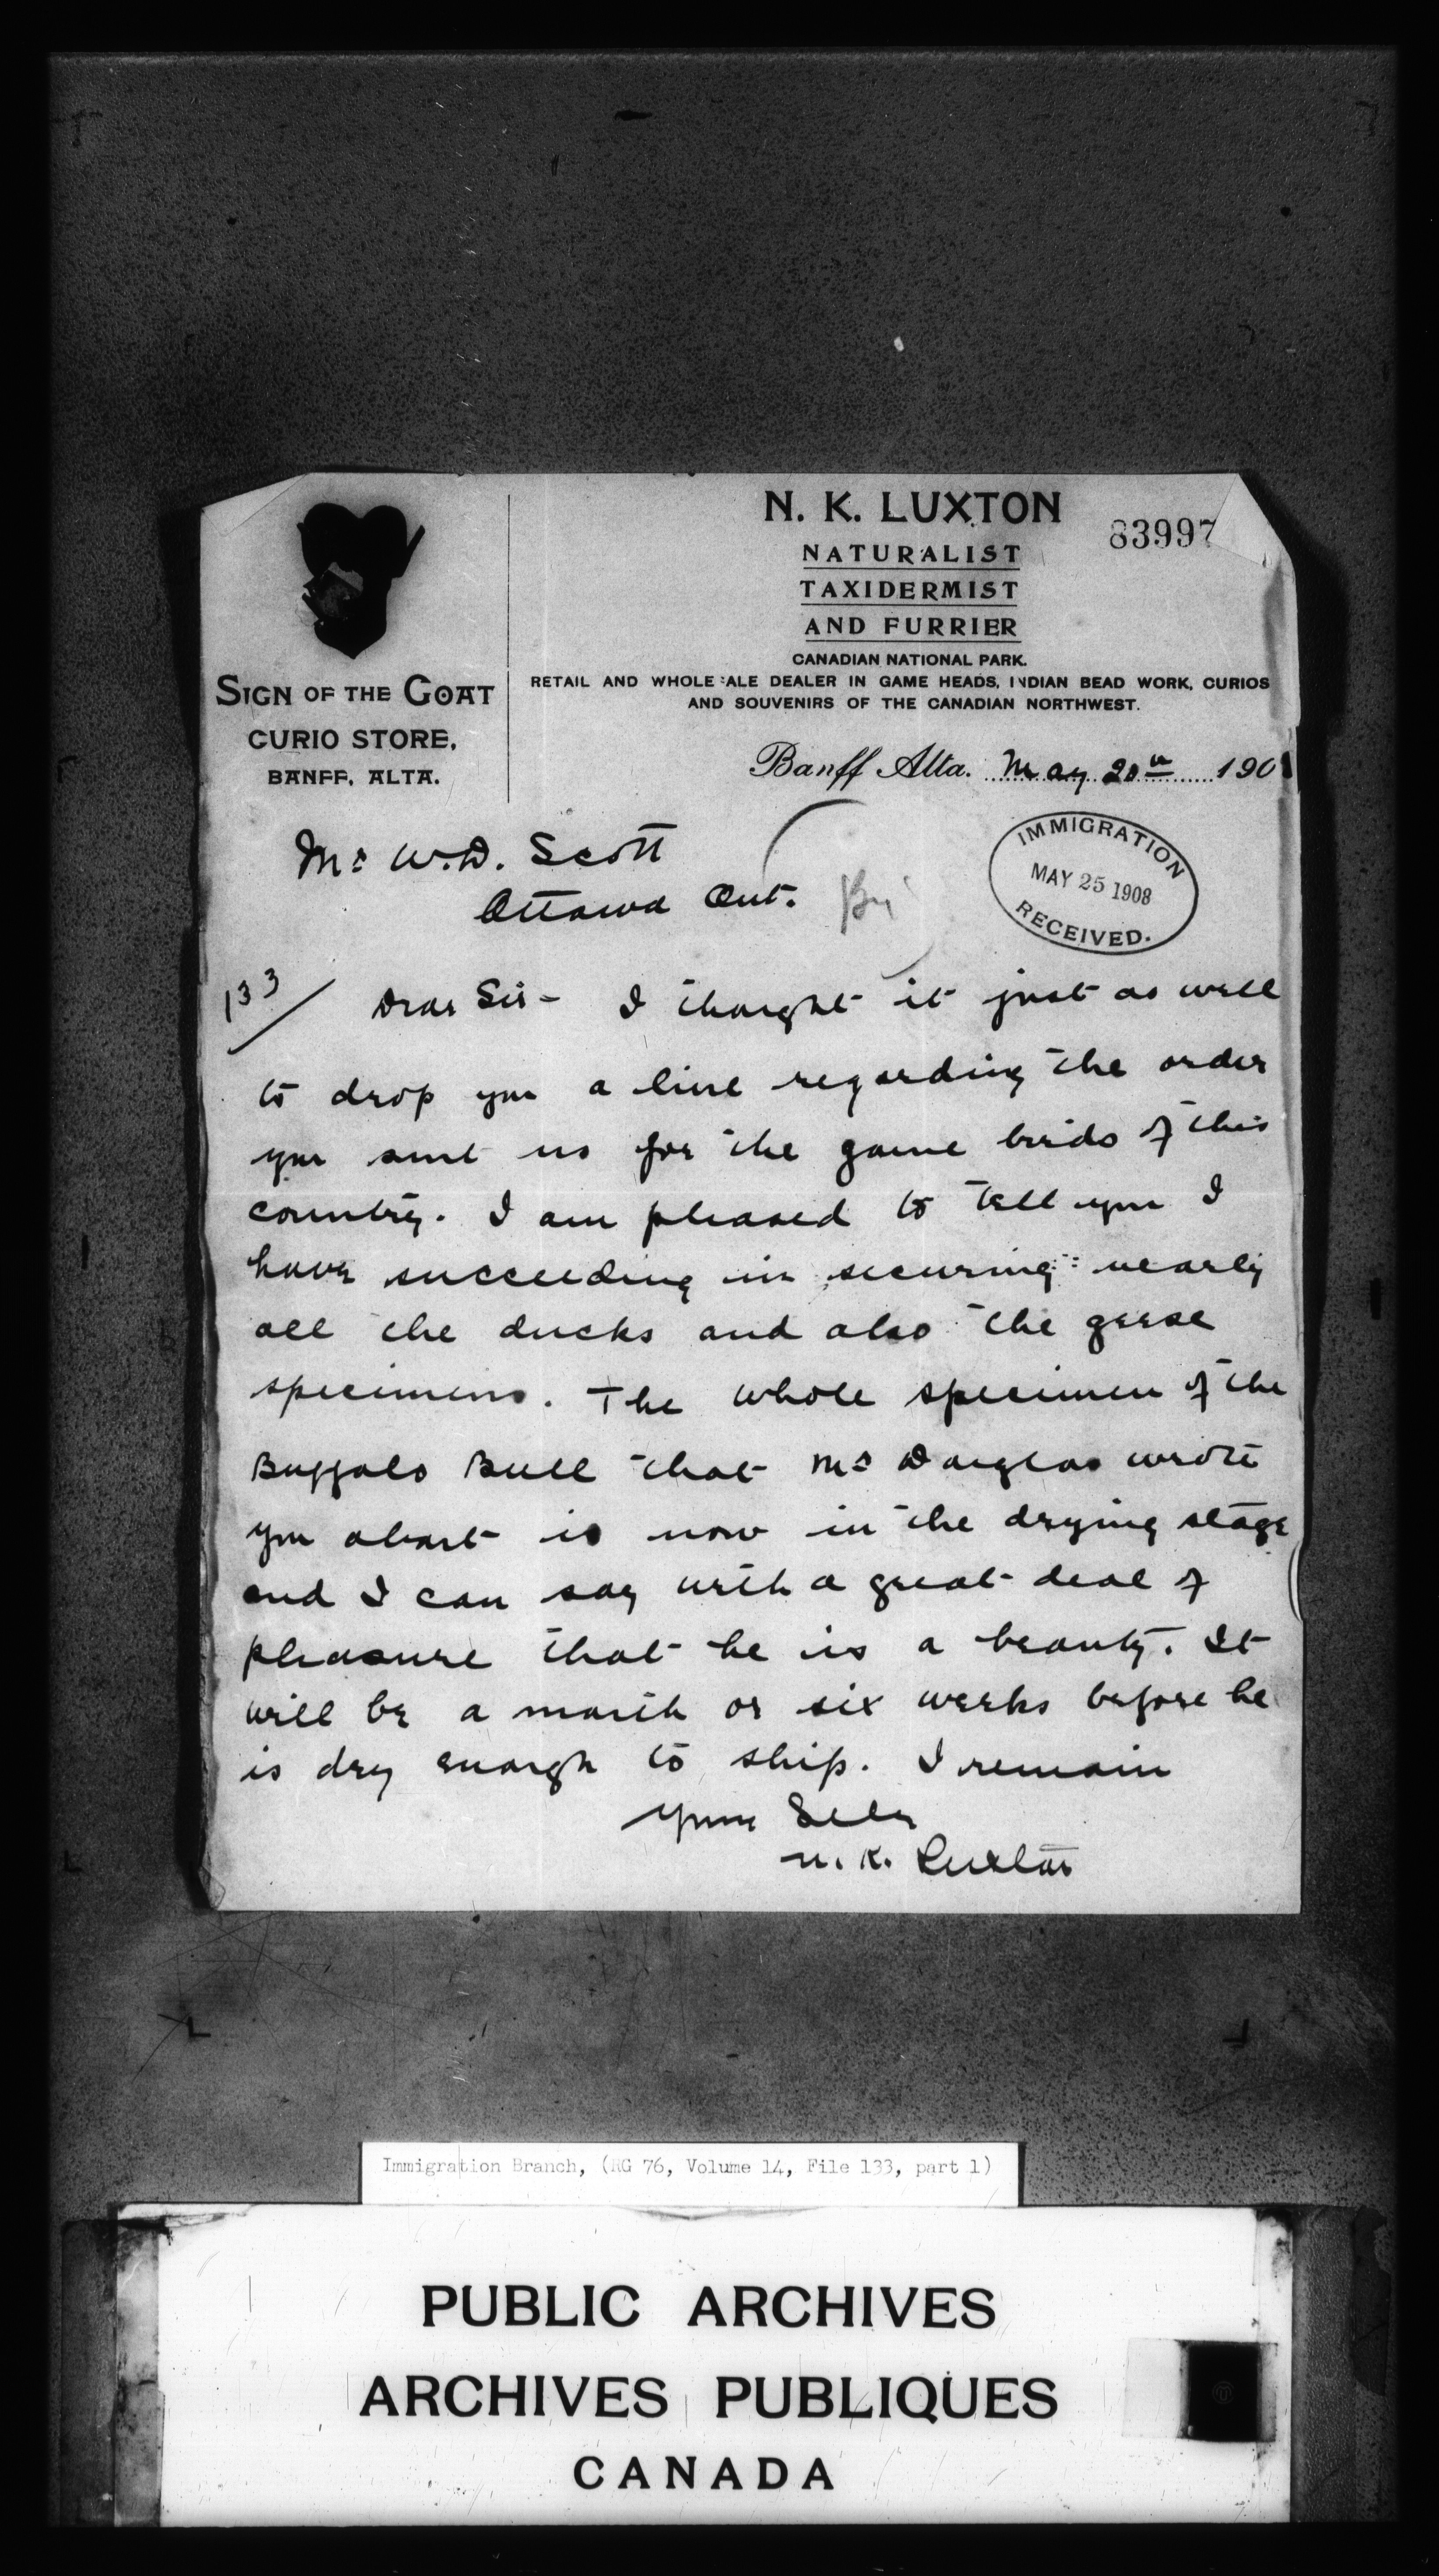 N. K. LUXTON
83997
NATURALIST
TAXIDERMIST
AND FURRIER
CANADIAN NATIONAL PARK.
RETAIL AND WHOLE ALE DEALER IN GAME HEADS, INDIAN BEAD WORK, CURIOS
AND SOUVENIRS OF THE CANADIAN NORTHWEST.
SIGN OF THE GOAT
CURIO STORE,
BANFF, ALTA.
Banff Alta. May 20th 190
IMMIGRATION
MAY 25 1908
RECEIVED.
Mr W.D. Scott
Ottawa Ont.
133
Dear Sir - I thought it just as well
to drop you a line regarding the order
you sent us for the game birds of this
country. I am pleased to tell you I
have succeeding in securing nearly
all the ducks and also the geese
specimens. The whole specimen of the
Buffalo Bull that Mr Douglas wrote
you about is now in the drying stage
and I can say with a great deal of
pleasure that he is a beauty. It
will be a month or six weeks before he
is dry enough to ship. I remain
Yours
N. K. Luxton
Immigration Branch, (RG 76, Volume 14, File 133, part 1)
PUBLIC ARCHIVES
ARCHIVES PUBLIQUES
CANADA